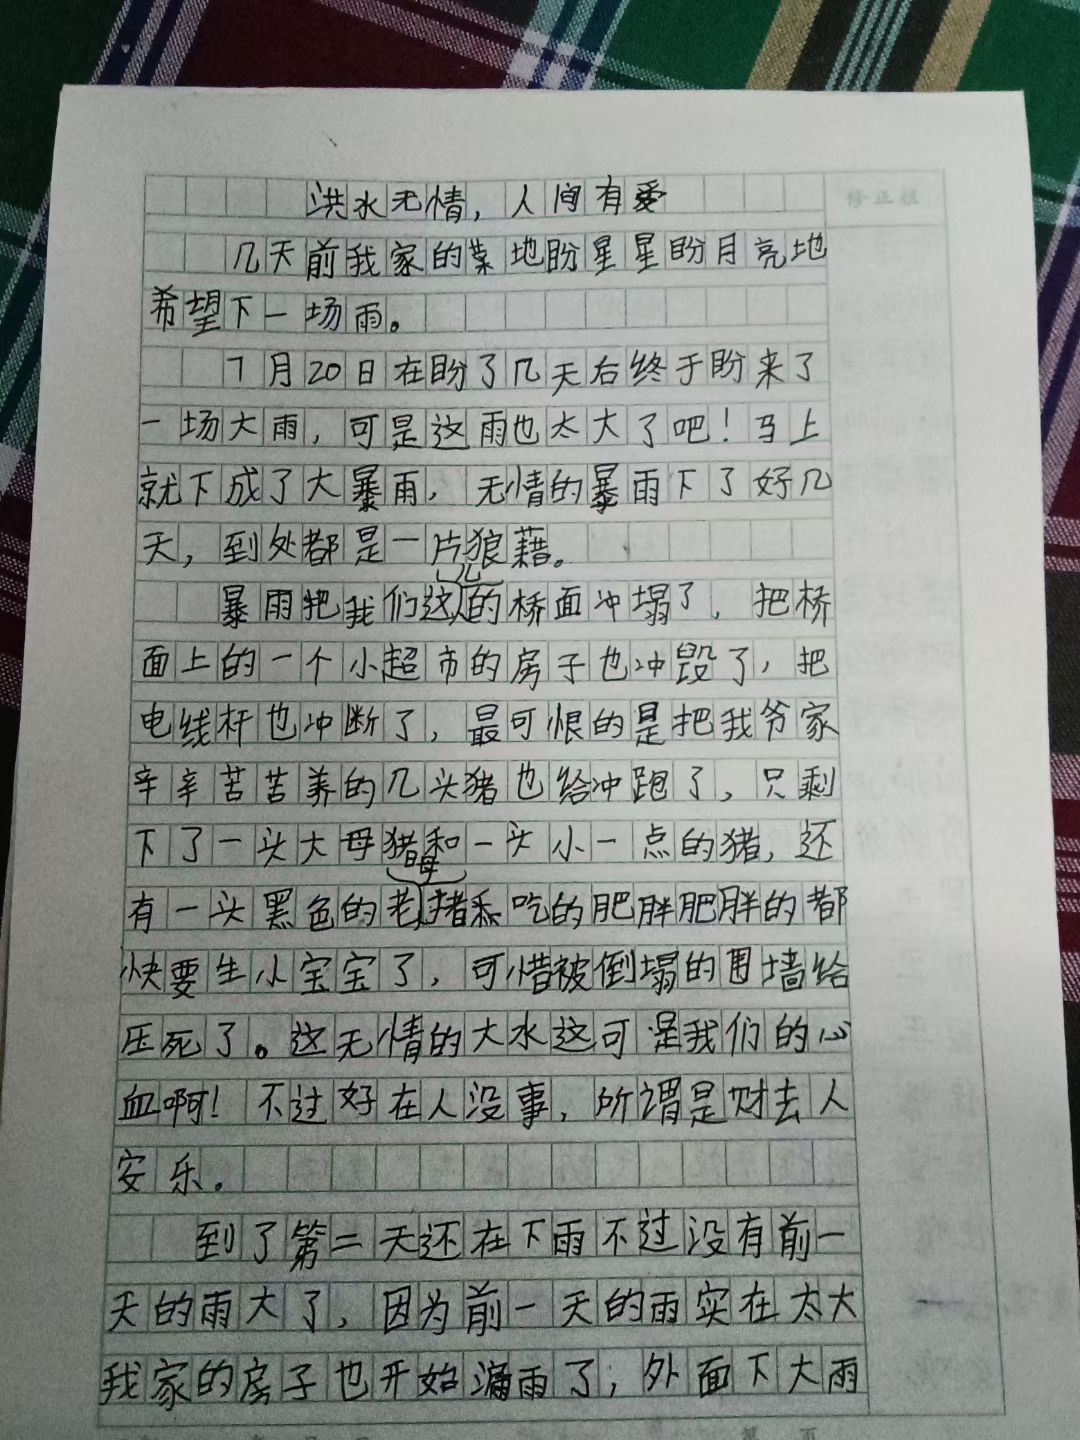 洪水无情，人间有爱
修正栏
几天前我家的菜地盼星星盼月亮地
希望下一场雨。
7月20日在盼了几天后终于盼来了
一场大雨，可是这雨也太大了吧！马上
就下成了大暴雨，无情的暴雨下了好几
天，到处都是一片狼藉。
暴雨把我们这儿的桥面冲塌了，把桥
面上的一个小超市的房子也冲毁了，把
电线杆也冲断了，最可恨的是把我爷家
辛辛苦苦养的几头猪也给冲跑了，只剩
下了一头大母猪和一头小一点的猪，还
有一头黑色的老母猪吃的肥胖肥胖的都
快要生小宝宝了，可惜被倒塌的围墙给
压死了。这无情的大水这可是我们的心
血啊！不过好在人没事，所谓是财去人
安乐。
到了第二天还在下雨不过没有前一
天的雨大了，因为前一天的雨实在太大
我家的房子也开始漏雨了，外面下大雨